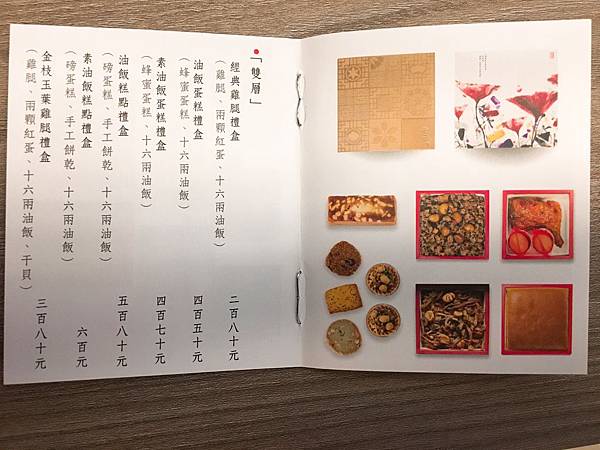 「雙層」
經典雞腿禮盒
（雞腿、兩顆紅蛋、十六兩油飯）
二百八十元
油飯蛋糕禮盒
（蜂蜜蛋糕、十六兩油飯）
四百五十元
素油飯蛋糕禮盒
（蜂蜜蛋糕、十六兩油飯）
四百七十元
油飯糕點禮盒
（磅蛋糕、手工餅乾、十六兩油飯）
五百八十元
素油飯糕點禮盒
（磅蛋糕、手工餅乾、十六兩油飯）
六百元
金枝玉葉雞腿禮盒
（雞腿、兩顆紅蛋、十六兩油飯、干貝）
三百八十元